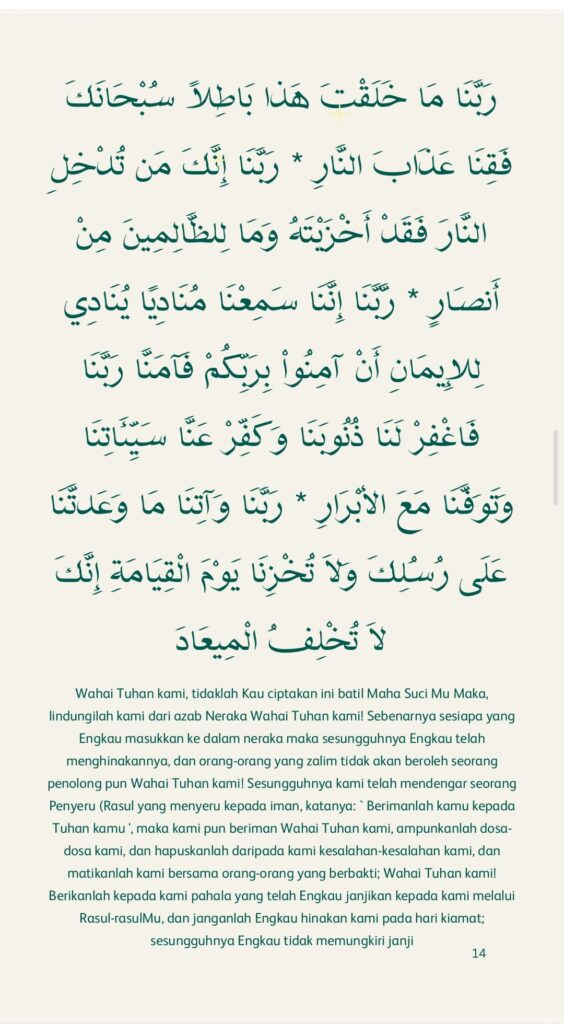 رَبَّنَا مَا خَلَقْتَ هَذا بَاطِلاً سُبْحَانَكَ
فَقِنَا عَذَابَ النَّارِ * رَبَّنَا إِنَّكَ مَن تُدْخِلِ
النَّارَ فَقَدْ أَخْزَيْتَهُ وَمَا لِلظَّالِمِينَ مِنْ
أَنصَارٍ * رَّبَّنَا إِنَّنَا سَمِعْنَا مُنَادِيًا يُنَادِي
لِلإِيمَانِ أَنْ آمِنُواْ بِرَبِّكُمْ فَآمَنَّا رَبَّنَا
فَاغْفِرْ لَنَا ذُنُوبَنَا وَكَفِّرْ عَنَّا سَيِّئَاتِنَا
وَتَوَفَّنَا مَعَ الأبْرَارِ * رَبَّنَا وَآتِنَا مَا وَعَدتَّنَا
عَلَى رُسُلِكَ وَلاَ تُخْزِنَا يَوْمَ الْقِيَامَةِ إِنَّكَ
لاَ تُخْلِفُ الْمِيعَادَ
Wahai Tuhan kami, tidaklah Kau ciptakan ini batil Maha Suci Mu Maka,
lindungilah kami dari azab Neraka Wahai Tuhan kami! Sebenarnya sesiapa yang
Engkau masukkan ke dalam neraka maka sesungguhnya Engkau telah
menghinakannya, dan orang-orang yang zalim tidak akan beroleh seorang
penolong pun Wahai Tuhan kami! Sesungguhnya kami telah mendengar seorang
Penyeru (Rasul yang menyeru kepada iman, katanya: ` Berimanlah kamu kepada
Tuhan kamu ', maka kami pun beriman Wahai Tuhan kami, ampunkanlah dosa-
dosa kami, dan hapuskanlah daripada kami kesalahan-kesalahan kami, dan
matikanlah kami bersama orang-orang yang berbakti; Wahai Tuhan kami!
Berikanlah kepada kami pahala yang telah Engkau janjikan kepada kami melalui
Rasul-rasulMu, dan janganlah Engkau hinakan kami pada hari kiamat;
sesungguhnya Engkau tidak memungkiri janji
14